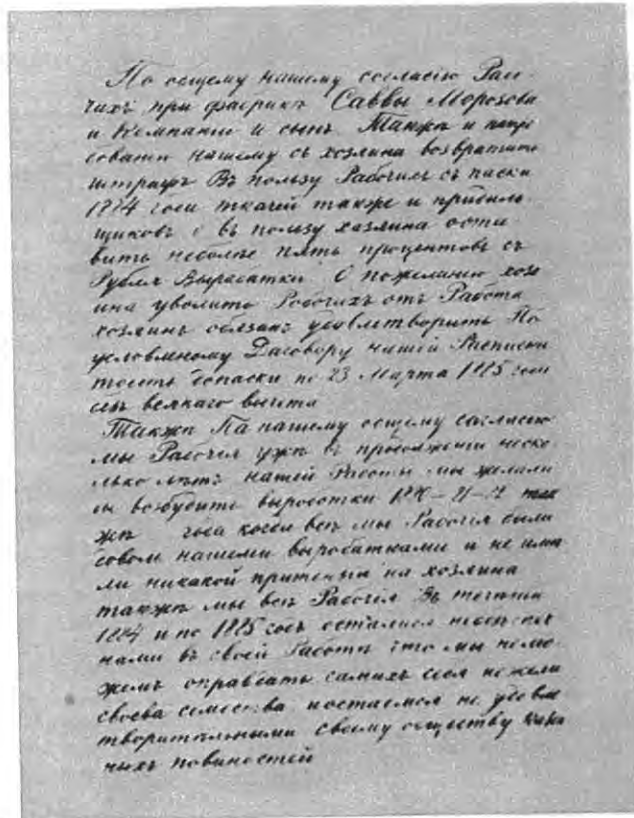 По общему нашему согласію Раб-
чихъ при фабрикѣ Саввы Морозова
и Компаніи и сынъ. Такжѣ и потре
бовати нашему съ хозяина возвратить
штрафъ Въ пользу Рабочимъ съ пасхи
1884 года ткачей также и прядиль
щиковъ въ пользу хозяина оста
вить неболѣе пять процентовъ съ
Рубля Выработки О пожеланію хозя
ина уволить Рабочихъ отъ Работа
хозяинъ обязанъ удовлетворить По
условленному Даговору нашей Расписки
тоесть допаски по 23 Марта 1885 года
всякаго вычета
Такжѣ Па нашему общему согласію
мы Рабочія ужѣ въ продолженіи неско
лько лѣтъ нашей Работы мы желали
бы возбудить выработки так
жѣ года когда всѣ мы Рабочія были
нашеми выработками и не имѣ
ли никакой на хозяина
такжѣ мы всѣ Рабочія Въ теченіи
1884 и по 1885 годъ осталися
нами въ своей Работѣ что мы немо-
жемъ оправдать самихъ себя нежели
своева семейства остаемся не удовле
творительными своему обществу
ныхъ повиностей